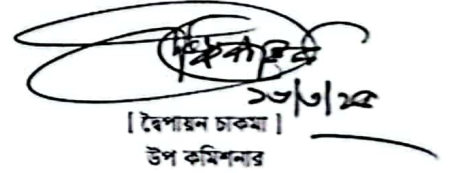 ১৩/৩/২৫
[ দ্বৈপায়ন চাকমা ]
উপ কমিশনার